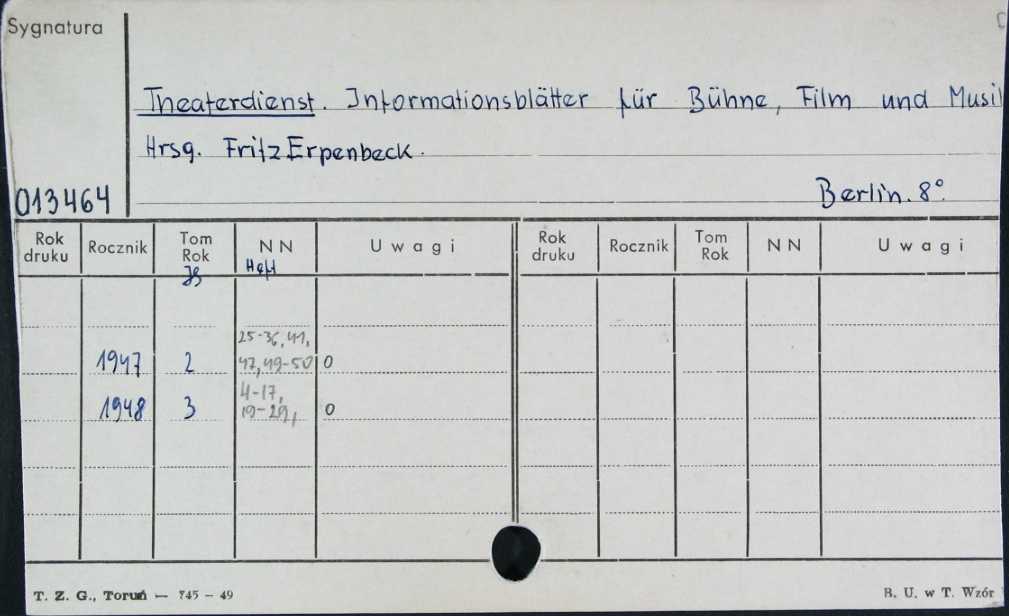 Sygnatura
Theaterdienst. Informationsblätter für Bühne, Film und Musi
Hrsg. Fritz Erpenbeck.
013464
Berlin. 8°.
Rok druku Rocznik Tom Rok Jg NN Heft Uwagi Rok druku Rocznik Tom Rok NN Uwagi
25-36, 41,
1947 2 47, 49-50 0
4-17,
1948 3 19-29, 0
T. Z. G., Toruń — 745 - 49
B. U. w T. Wzór